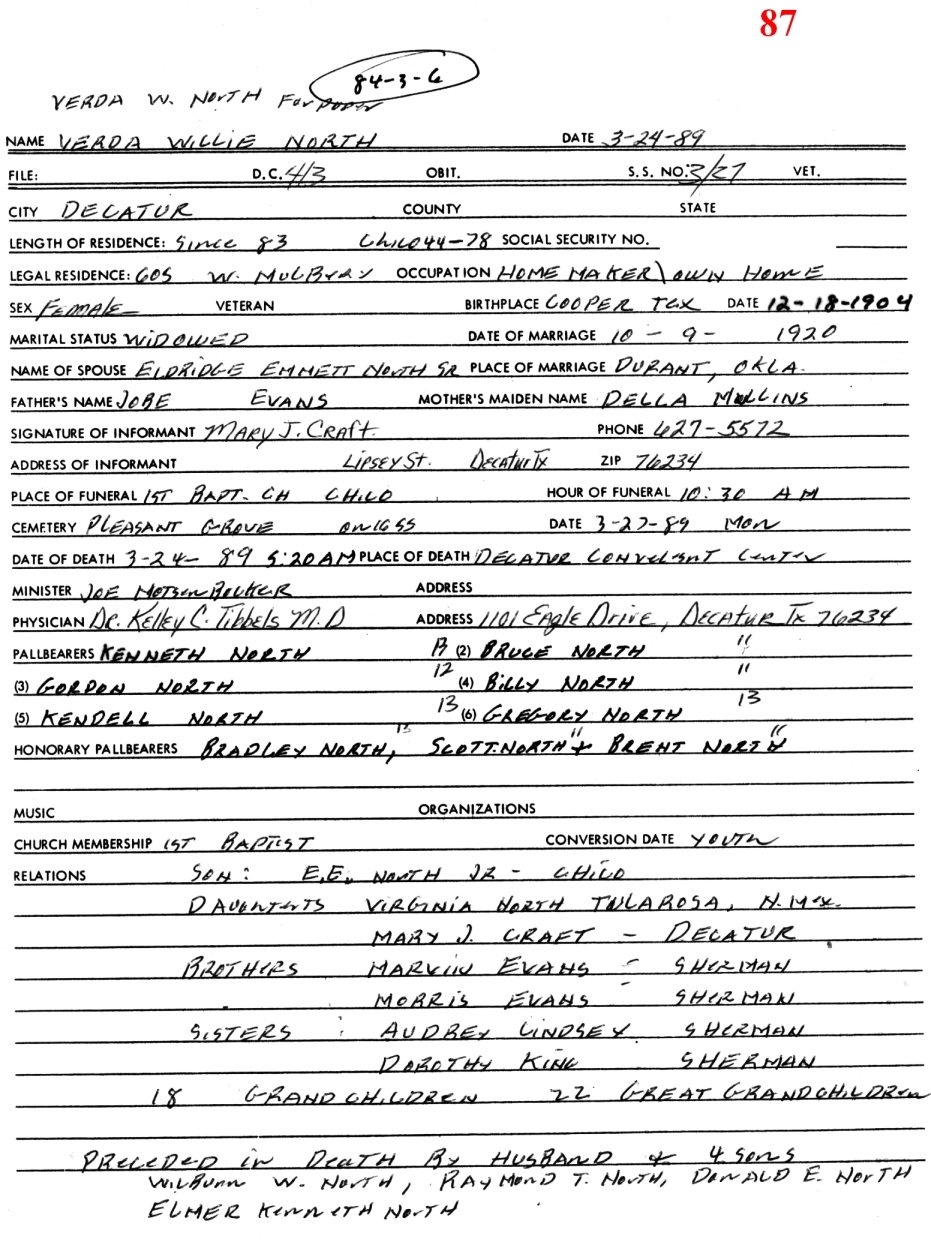 87
84-3-6
VERDA W. NORTH For
NAME VERDA WILLIE NORTH DATE 3-24-89
FILE: D.C. 4/3 OBIT. S.S. NO. 3/27 VET.
CITY DECATUR COUNTY STATE
LENGTH OF RESIDENCE: Since 83 Chico 44-78 SOCIAL SECURITY NO.
LEGAL RESIDENCE: 605 W. MULBYRY OCCUPATION HOME MAKER \ OWN HOME
SEX Female VETERAN BIRTHPLACE COOPER TEX DATE 12-18-1904
MARITAL STATUS WIDOWED DATE OF MARRIAGE 10 - 9 - 1920
NAME OF SPOUSE ELDRIDGE EMMETT NORTH SR PLACE OF MARRIAGE DURANT, OKLA.
FATHER'S NAME JOBE EVANS MOTHER'S MAIDEN NAME DELLA MULLINS
SIGNATURE OF INFORMANT MARY J. CRAFT. PHONE 627-5572
ADDRESS OF INFORMANT LIPSEY St. Decatur Tx ZIP 76234
PLACE OF FUNERAL 1ST BAPT. CH CHICO HOUR OF FUNERAL 10:30 AM
CEMETERY PLEASANT GROVE ON 1655 DATE 3-27-89 MON
DATE OF DEATH 3-24-89 5:20 AM PLACE OF DEATH DECATUR CONVELSNT Center
MINISTER JOE ADDRESS
PHYSICIAN Dr. Kelley C. Tibbels M.D ADDRESS 1101 Eagle Drive, Decatur Tx 76234
PALLBEARERS KENNETH NORTH 13 (2) BRUCE NORTH "
(3) GORDON NORTH 12 (4) BILLY NORTH "
(5) KENDELL NORTH 13 (6) GREGORY NORTH 13
HONORARY PALLBEARERS BRADLEY NORTH, 13 SCOTT NORTH " + BRENT NORTH "
MUSIC ORGANIZATIONS
CHURCH MEMBERSHIP 1ST BAPTIST CONVERSION DATE YOUTH
RELATIONS SON: E.E. NORTH JR - CHICO
DAUGHTERS VIRGINIA NORTH TULAROSA, N. Mex.
MARY J. CRAFT - DECATUR
BROTHERS MARVIN EVANS - SHERMAN
MORRIS EVANS SHERMAN
SISTERS : AUDREY LINDSEY SHERMAN
DOROTHY KING SHERMAN
18 GRANDCHILDREN 22 GREAT GRANDCHILDREN
PRECEDED in DEATH BY HUSBAND & 4 SONS
WILBURN W. NORTH, RAYMOND T. NORTH, DONALD E. NORTH
ELMER KENNETH NORTH